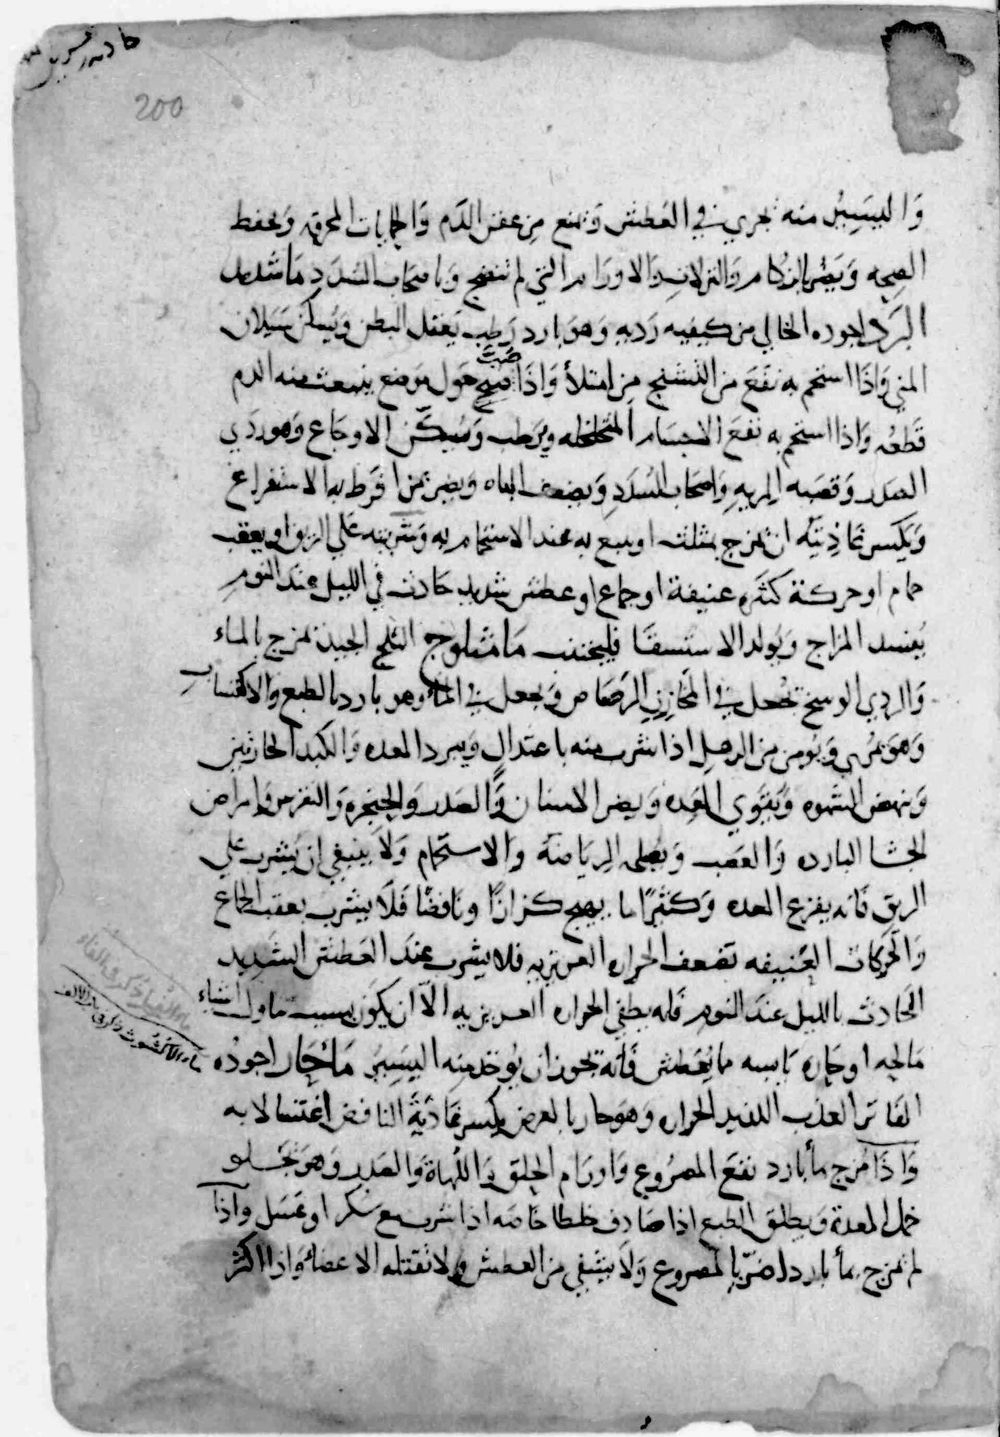 200
وَاليسِيرُ منه يجزي في العَطش وَيمنع مِن عفن الدَّم وَالحميات المحرقه وَيحفظ
الصحه وَيَضُر بالزكام وَالنزلات وَالاورام التي لم تنضج وَباصحاب السُدَد مَا شديد
البرد اجوده الخالي من كيفيه رَديه وَهوَ بارد رَطب يَعقل البطن وَيُسكن سَيَلان
المني وَاذَا استحم به نَفَعَ من التشنج مِن امتلأ وَاذَا صُبَّ حَول موضع ينبعث منه الدم
قَطعَه وَاذا استحم به نفَعَ الاجسام المتخلخله وَيرَطب وَيُسَكّن الاوجاع وَهو ردي
الصدر وَقصَبه الريهِ وَاصحاب السُدَدِ وَيضعف الباه وَيضر بمن افرَط به الاستفراغ
وَيكسر عَاذِيتَه ان يمزج بمثلث او به عند الاستحمام به وَشَربته عَلى الريق او يعقب
حمام او حركة كثَره عنيفة او جماع او عطش شديد حَادث في الليل عند النوم
يُفسد المزاج وَيُولد الاستسقَا فليجتنب مَا مثلوج الثلج الجيد يمزج بالماء
وَالردي الوسخ يجعل في المخازِن الرصَاص وَيجعل في الماء وهو بارد بالطبع وَالاكتسابِ
وَهوَ يمري وَيُومن من الرهل اذا شرب منه باعتدال وَيبرد المعده وَالكبد الحارتين
وَينهض الشهوه وَيُقوي المعِده وَيضر الاسنان وَالصَدر وَالحنجره وَالنقرس وَامراض
الحشا البارده وَالعَصَب وَيصلح الريَاضه وَالاستحمام وَلا ينبغي ان يُشرب علي
الريق فَانه يفزع المعده وَكثيرًا ما يهيج كزازًا وَنافضًا فَلا يشرب بعقب الجماع
وَالحركات العنيفه تضعف الحراره الغريزيه فلا يشرب عند العَطش الشديد
الحَادث بالليل عند النوم فانه يطفي الحراره الغريزيه الّا ان يكوَن بسبب تناول اشياء
مَالحِه او حَاره يَابسه مما يُعَطش فَانه يجوز ان يُوخذ مِنه اليَسِير مَا حَار اجودُه
الفَاتر العذب اللذيذ الحراره وَهوَ حار بالعرض يكسر عَاديَة النافض اغتسالا به
وَاذَا مُزج بمأ بارد نفَعَ المصرُوع وَاورَام الحلق وَاللّهاة وَالصدر وَهوَ يَجلو
خمل المعدة وَيطلق الطبع اذا صَادف خلطا خاصَه اذا شرب مع سكر او عسَل وَاذَا
لم يمزج بمأ بارد اضرّ بالمصروع وَلا يشفي من العطش وَلا تقبله الاعضاء وَاذا اكثر
ماء الاكشوث ذكر في باب الالف